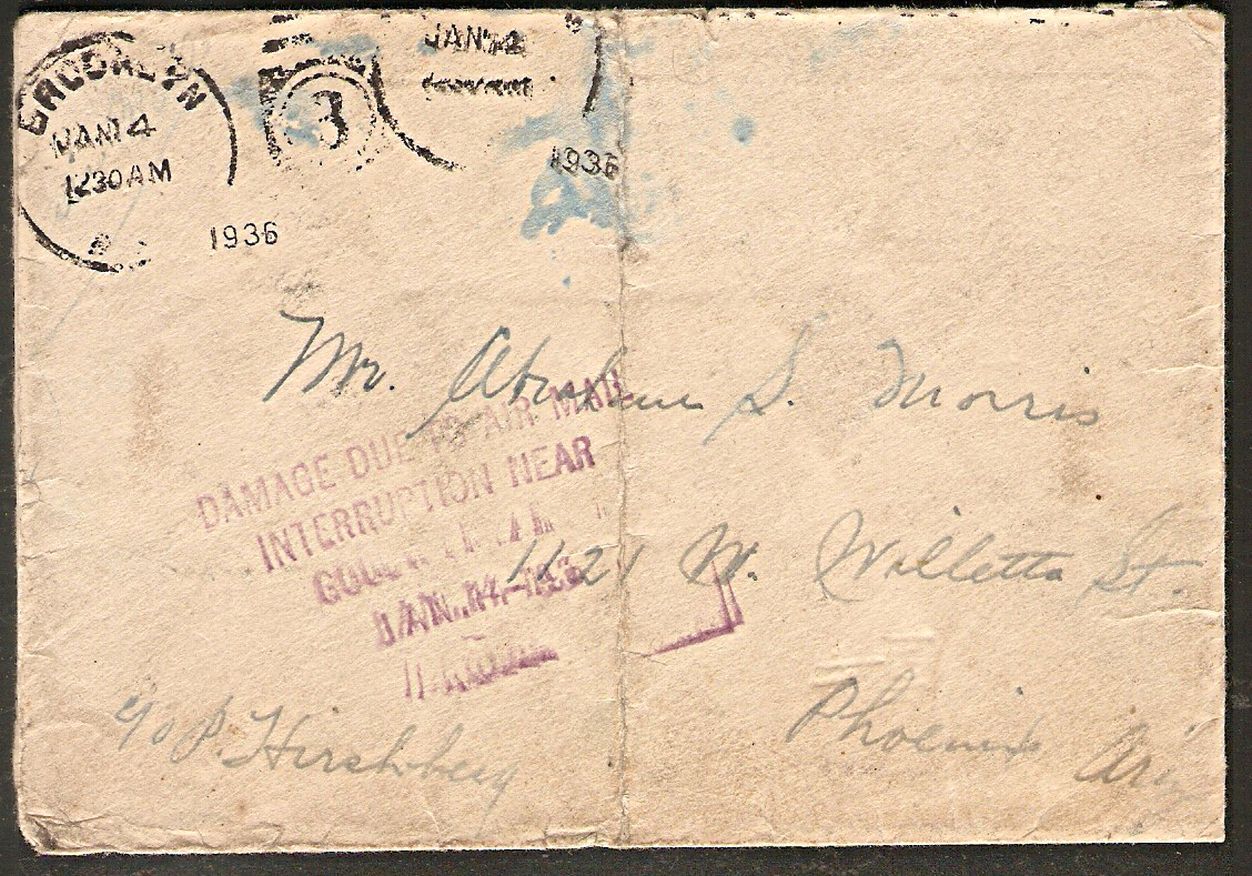 BROOKLYN
JAN 14
12 30 AM
1936
3
JAN 14
1936
Mr. Abraham S. Morris
DAMAGE DUE TO AIR MAIL
INTERRUPTION NEAR
JAN. 14, 193
1121 W. Willetta St.
c/o P. Hirshberg
Phoenix Ariz